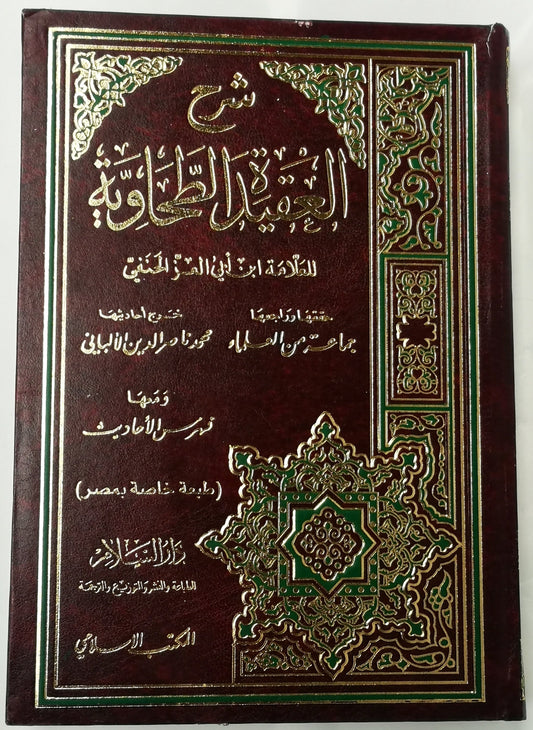 شرح
العقيدة الطحاوية
للعلامة ابن أبي العز الحنفي
حققها وراجعها
جماعة من العلماء
خرج أحاديثها
محمد ناصر الدين الألباني
ومعها
فهرس الأحاديث
(طبعة خاصة بمصر)
دار السلام
للطباعة والنشر والتوزيع والترجمة
المكتب الإسلامي